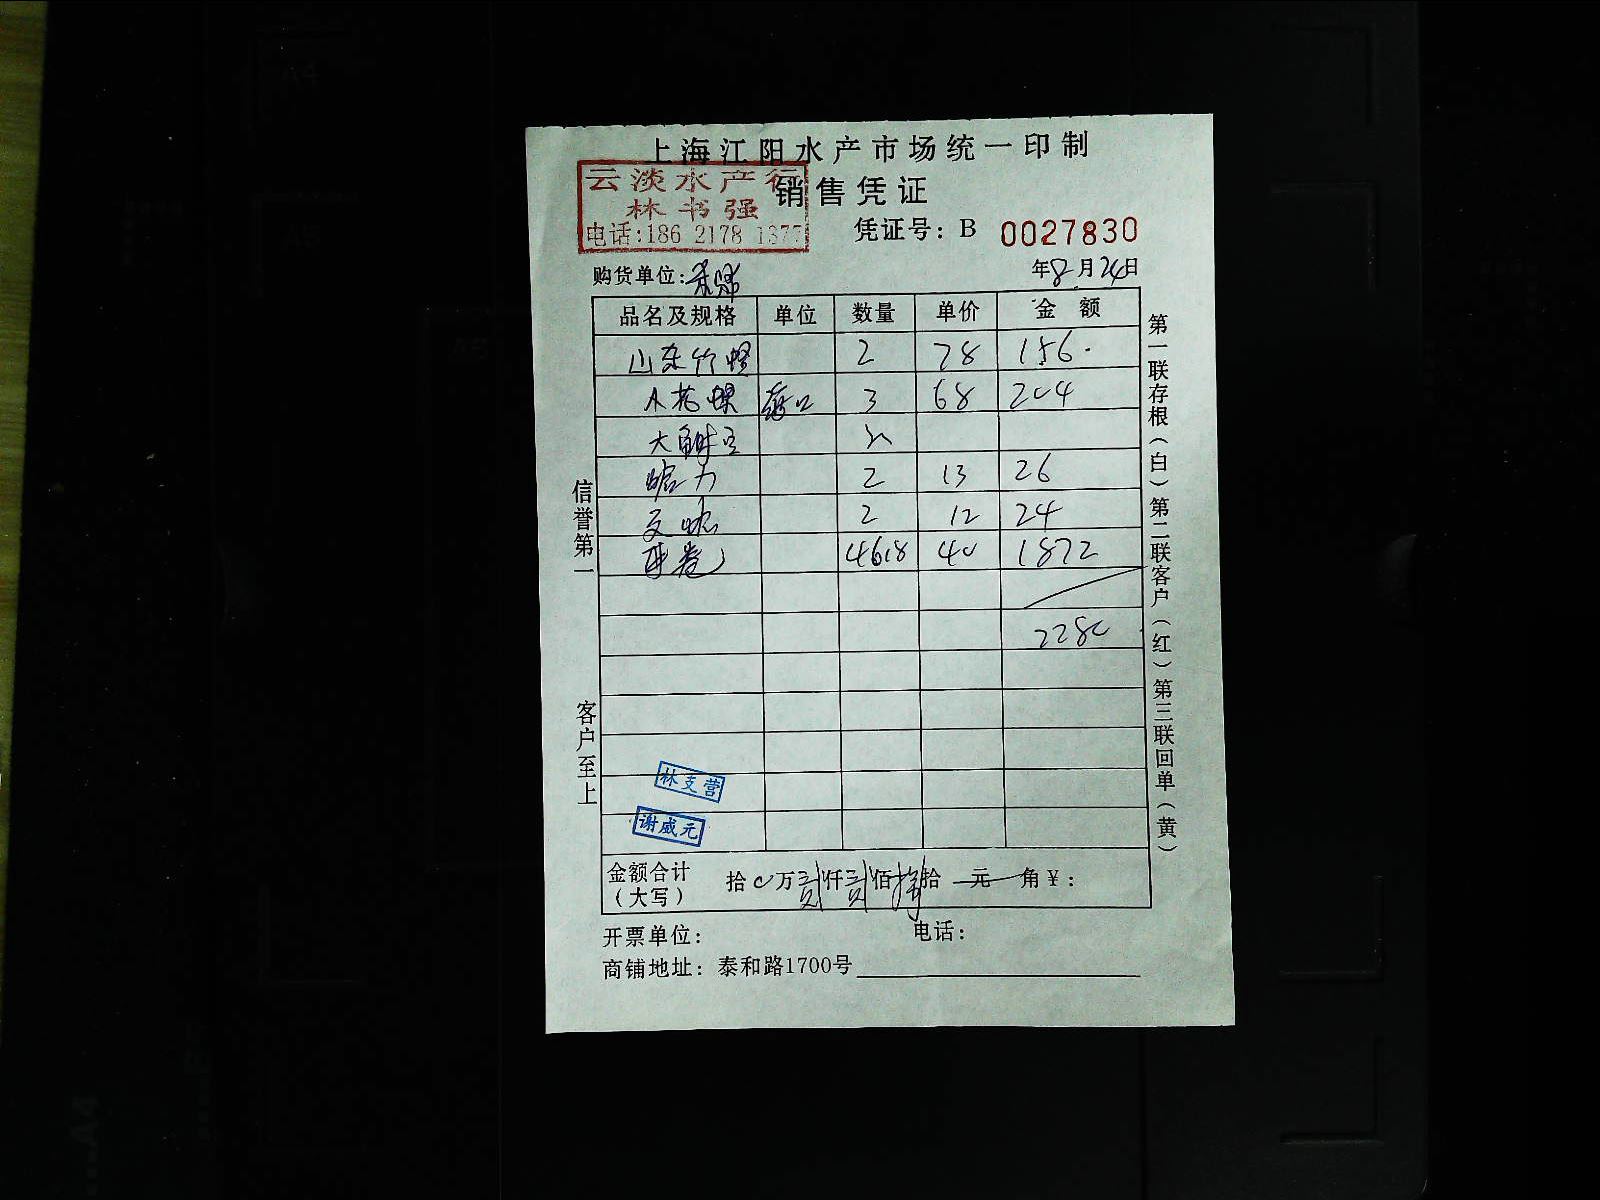 上海江阳水产市场统一印制
云淡水产行
销售凭证
林书强
电话:186 2178 1377
凭证号: B 0027830
购货单位:
年8月24日
品名及规格 单位 数量 单价 金额
山东竹蛏 2 78 156
3 68 204
大
蛤力 2 13 26
2 12 24
4618 40 1872
2280
林支营
谢威元
金额合计(大写) 拾0万贰仟贰佰捌拾元角¥:
开票单位: 电话:
商铺地址: 泰和路1700号
信誉第一 客户至上
第一联存根(白)第二联客户(红)第三联回单(黄)